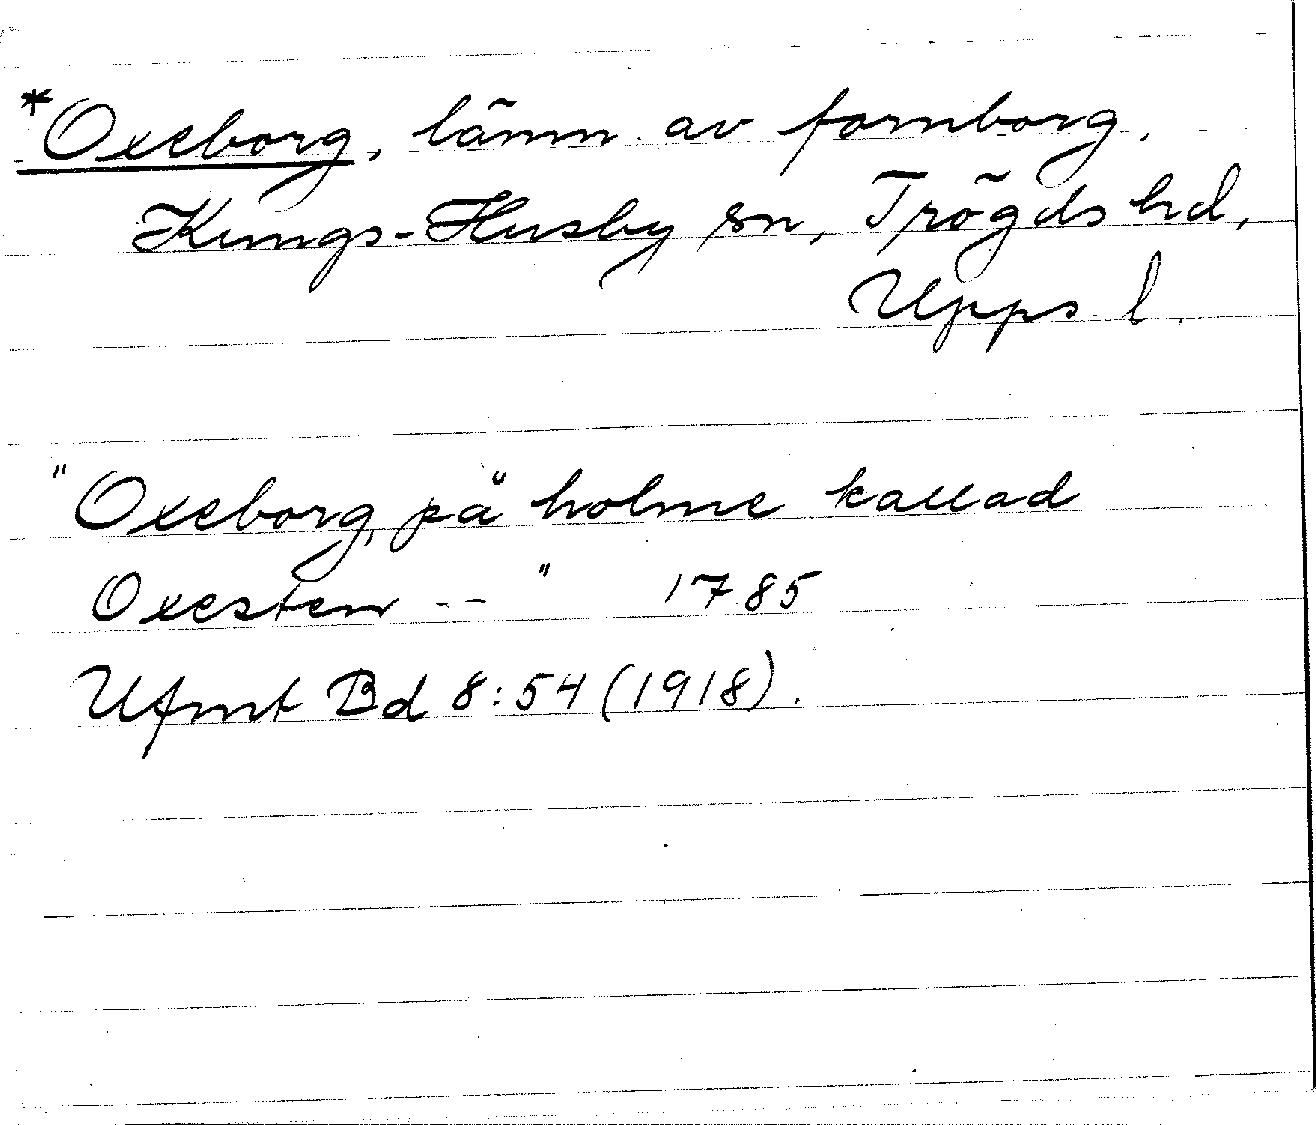 *Oxeborg, lämn. av fornborg,
Kungs-Husby sn, Trögds hd,
Upps l.
"Oxeborg, på holme kallad
Oxesten -- " 1785
Ufmt Bd 8:54 (1918).